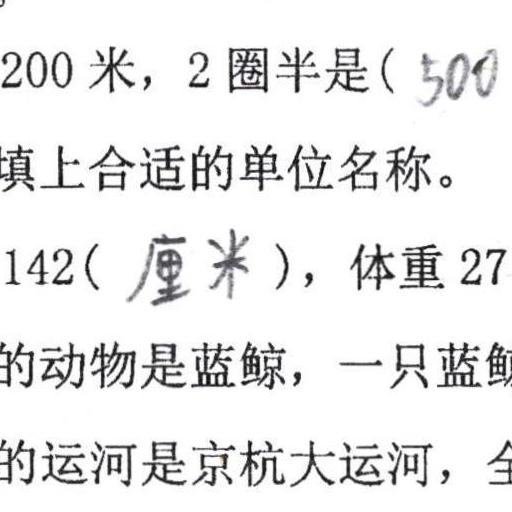 200 米，2 圈半是( 500
填上合适的单位名称。
142( 厘米 )，体重 27
的动物是蓝鲸，一只蓝鲸
的运河是京杭大运河，全